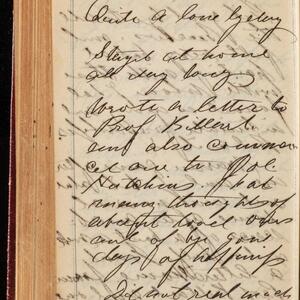 Quite a lonely day
Stayed at home
all day long
wrote a letter to
Prof.
and also commen
ced one to Pol.
Hutchins that
many thoughts of
absent loved ones
and of by gone
days of happiness
Did not read much